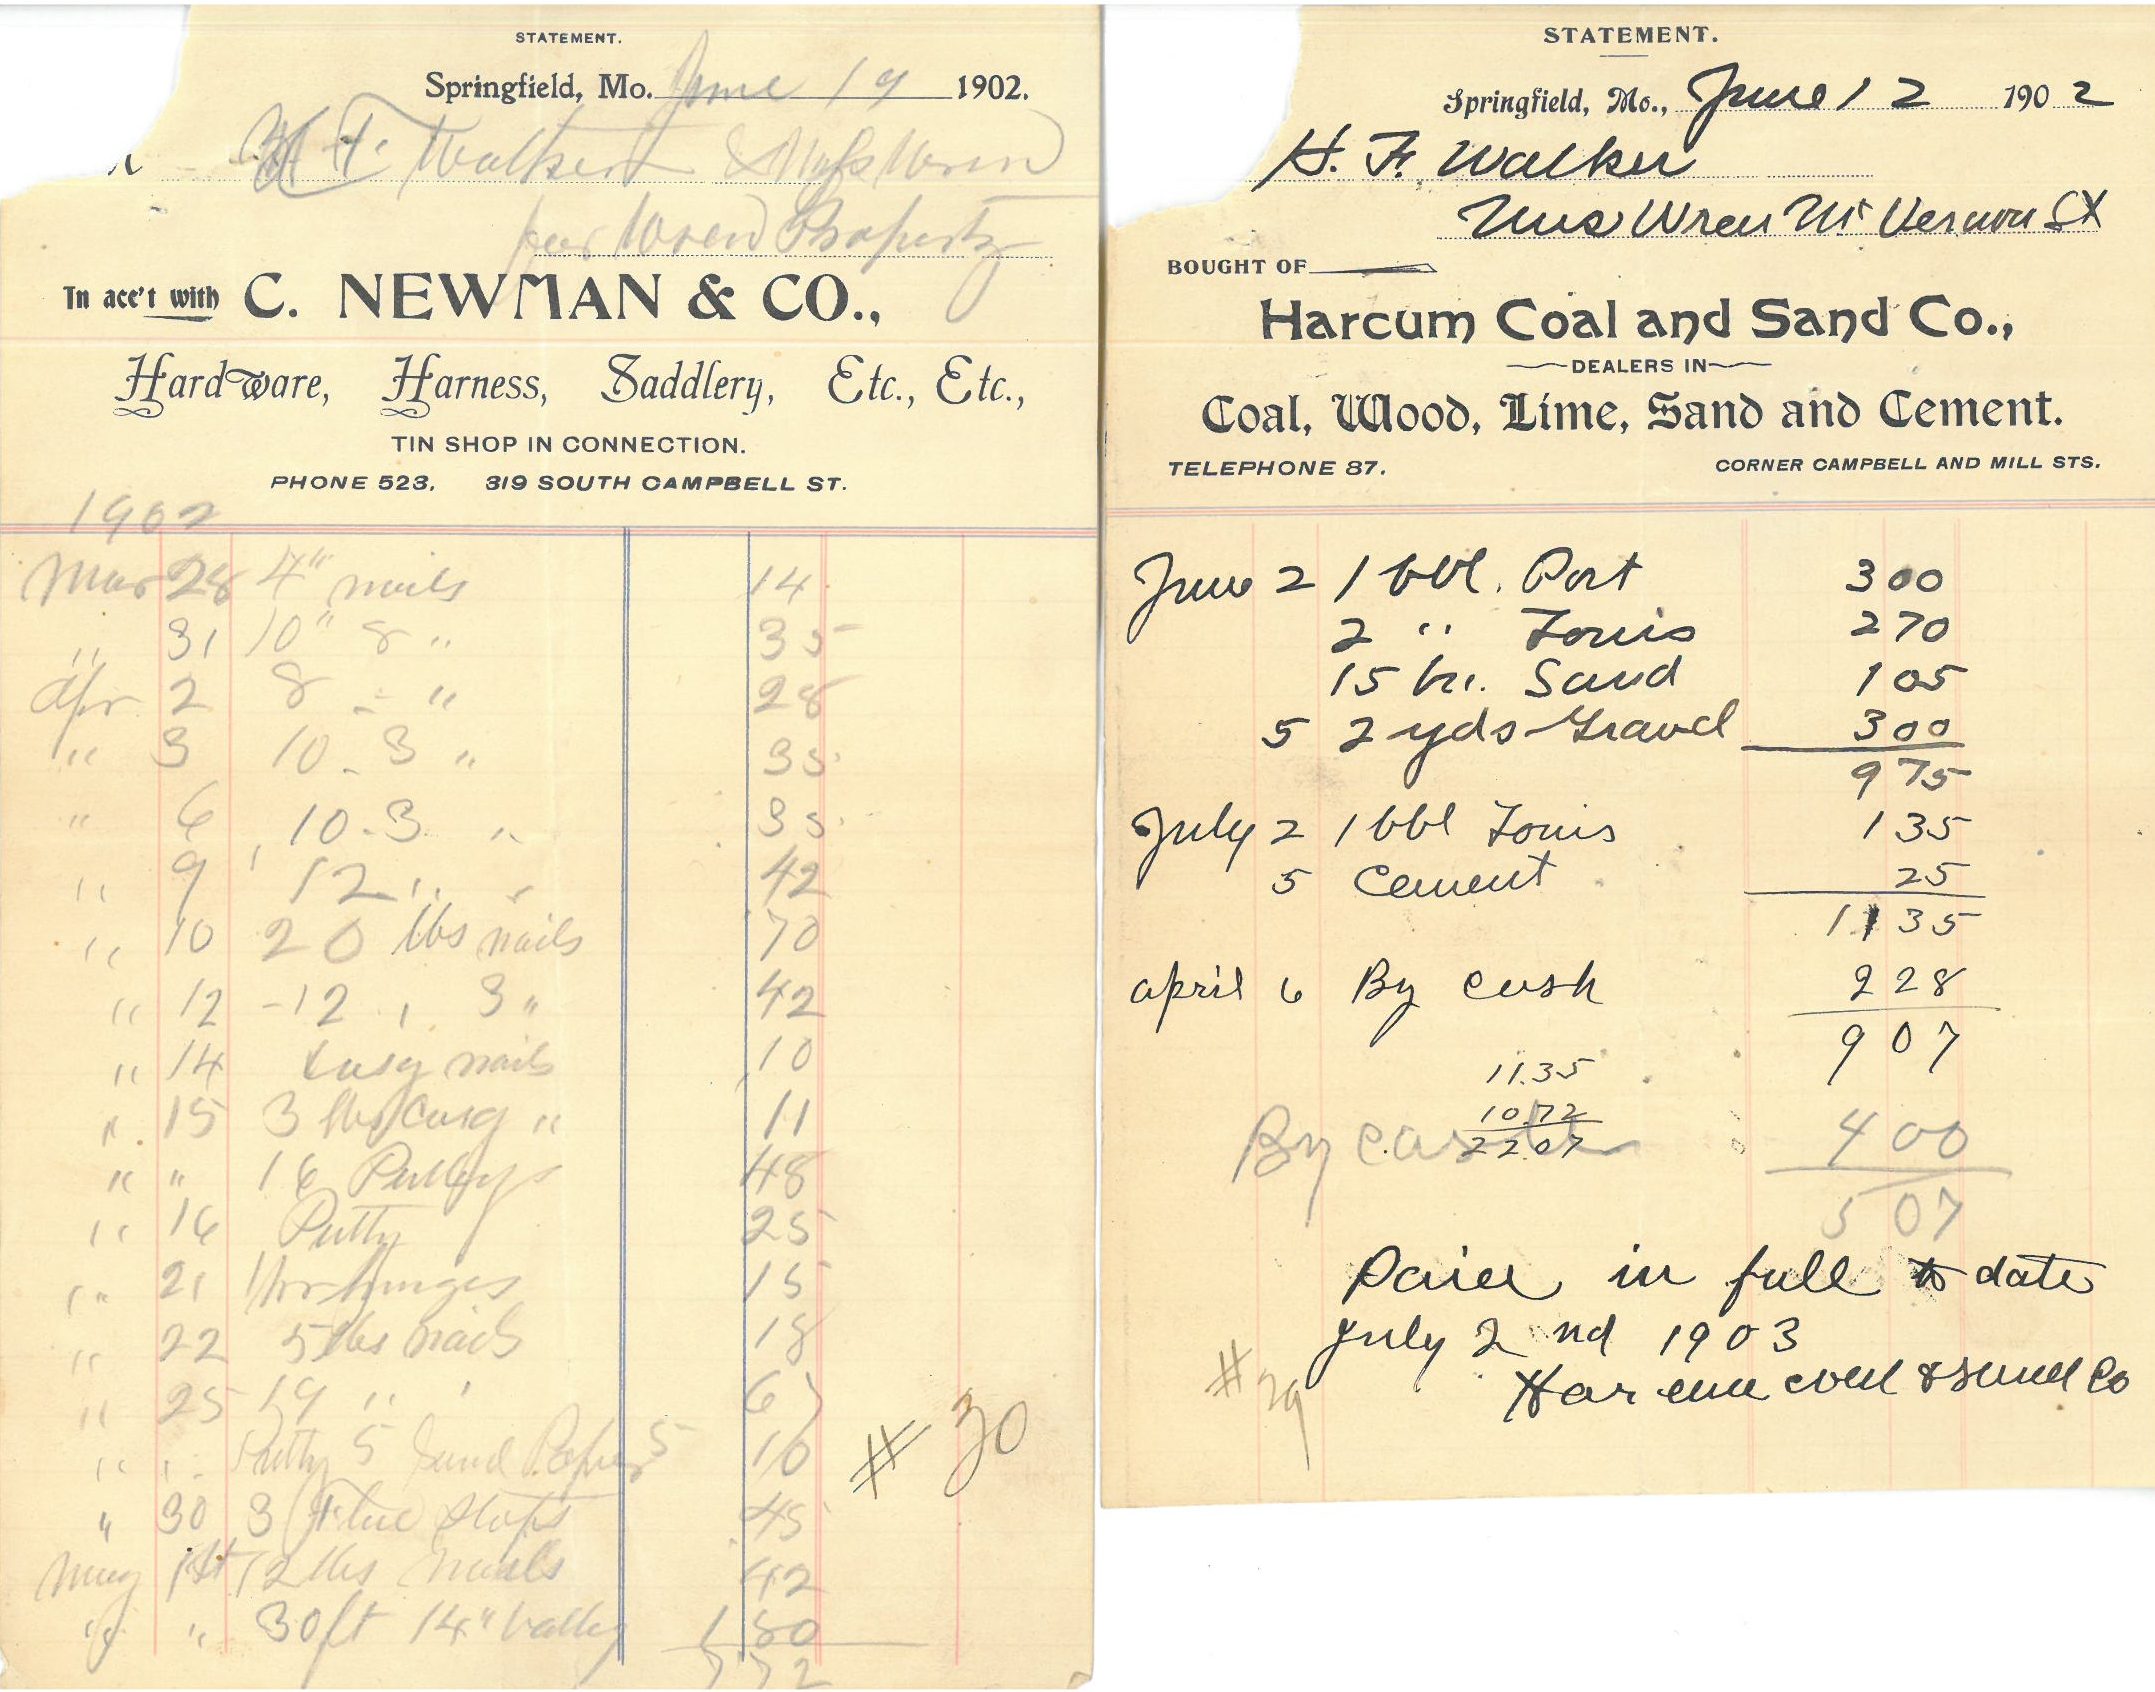 STATEMENT.
Springfield, Mo. June 19 1902.
H. F. Walker & Miss Wren
for Wren Property
In acc't with C. NEWMAN & CO.,
Hardware, Harness, Saddlery, Etc., Etc.,
TIN SHOP IN CONNECTION.
PHONE 523. 319 SOUTH CAMPBELL ST.
1902
Mar 28 4" nails 14
" 31 10" 8 " 35
Apr 2 8 - " 28
" 3 10 - 3 " 35
" 6 10 - 3 " 35
" 9 12 " " 42
" 10 20 lbs nails 70
" 12 - 12 , 3 " 42
" 14 nails 10
" 15 3 lbs Casg " 11
" " 16 Pulleys 48
" 16 Putty 25
" 21 hinges 15
" 22 5 lbs nails 18
" 25 19 " " 67
" " Putty 5 Sand Paper 5 10
" 30 3 Flue Stops 45
May 1st 12 lbs nails 42
" " 30 ft 14" Valley 1 50
7 72
# 30
STATEMENT.
Springfield, Mo., June 12 1902
H. F. Walker
Mrs Wren Mt Vernon St
BOUGHT OF
Harcum Coal and Sand Co.,
DEALERS IN
Coal, Wood, Lime, Sand and Cement.
TELEPHONE 87. CORNER CAMPBELL AND MILL STS.
June 2 1 bbl. Port 300
2 " Louis 270
15 bu. Sand 105
5 2 yds Gravel 300
975
July 2 1 bbl Louis 135
5 Cement 25
1135
April 6 By cash 228
907
11.35
10.72
22.07
By cash 400
507
Paid in full to date
July 2 nd 1903
Harcum coal & sand Co
# 29